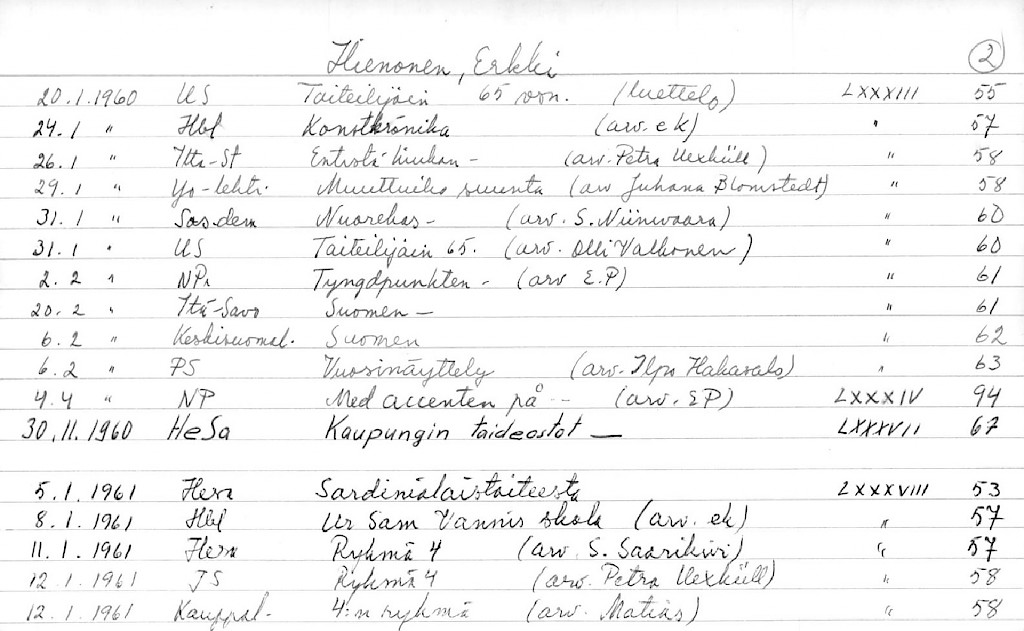 Hienonen, Erkki 2
20.1.1960 US Taiteilijain 65 von. (luettelo) LXXXIII 55
24.1 " Hbl Konstkrönika (arv. ek) " 57
26.1 " Ilta-St Entistä hiukan - (arv. Petra Uexküll) " 58
29.1 " Yo-lehti. Muuttuiko suunta (arv Juhana Blomstedt) " 58
31.1 " Sos.dem Nuorekas - (arv. S. Niinivaara) " 60
31.1 " US Taiteilijain 65. (arv. Olli Valkonen) " 60
2.2 " NPr Tyngdpunkten - (arv E.P) " 61
20.2 " Itä-Savo Suomen - " 61
6.2 " Keskisuomal. Suomen " 62
6.2 " PS Vuosinäyttely (arv. Ilpo Hakasalo) " 63
4.4 " NP Med accenten på -- (arv. EP) LXXXIV 94
30.11.1960 HeSa Kaupungin taideostot — LXXXVII 67
5.1.1961 Hesa Sardinialaistaiteesta LXXXVIII 53
8.1.1961 Hbl Ur Sam Vannis skola (arv. ek) " 57
11.1.1961 Hesa Ryhmä 4 (arv. S. Saarikivi) " 57
12.1.1961 IS Ryhmä 4 (arv. Petra Uexküll) " 58
12.1.1961 Kauppal. 4:n ryhmä (arv. Matias) " 58